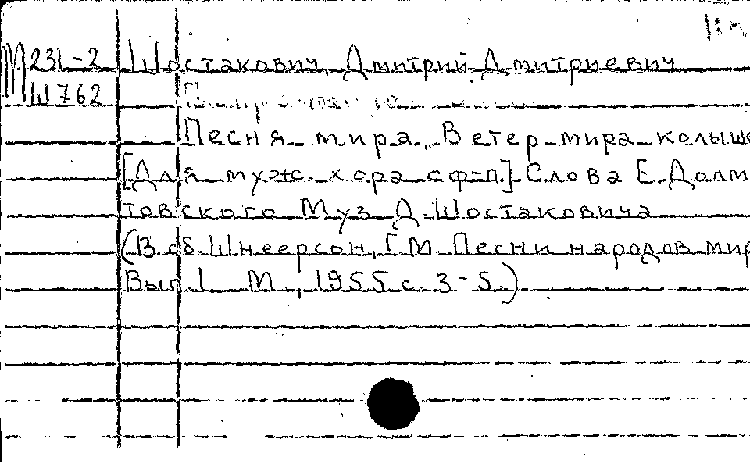 М231-2 Шостакович, Дмитрий Дмитриевич
Ш762
Песня мира. Ветер мира колыше
[Для мужс. хора с ф-п.] Слова Е. Долма
товского Муз. Д. Шостаковича
(В сб. Шнеерсон, Г. М. Песни народов мир
Вып. 1 М., 1955 с. 3-5.)